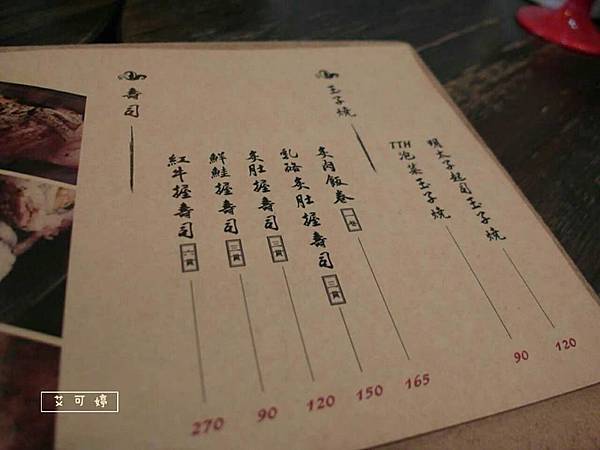 玉子燒
明太子起司玉子燒 120
TTH泡菜玉子燒 90
壽司
炙肉飯卷 一卷 165
乳酪炙肚握壽司 二貫 150
炙肚握壽司 二貫 120
鮮鮭握壽司 二貫 90
紅牛握壽司 六貫 270
艾可婷